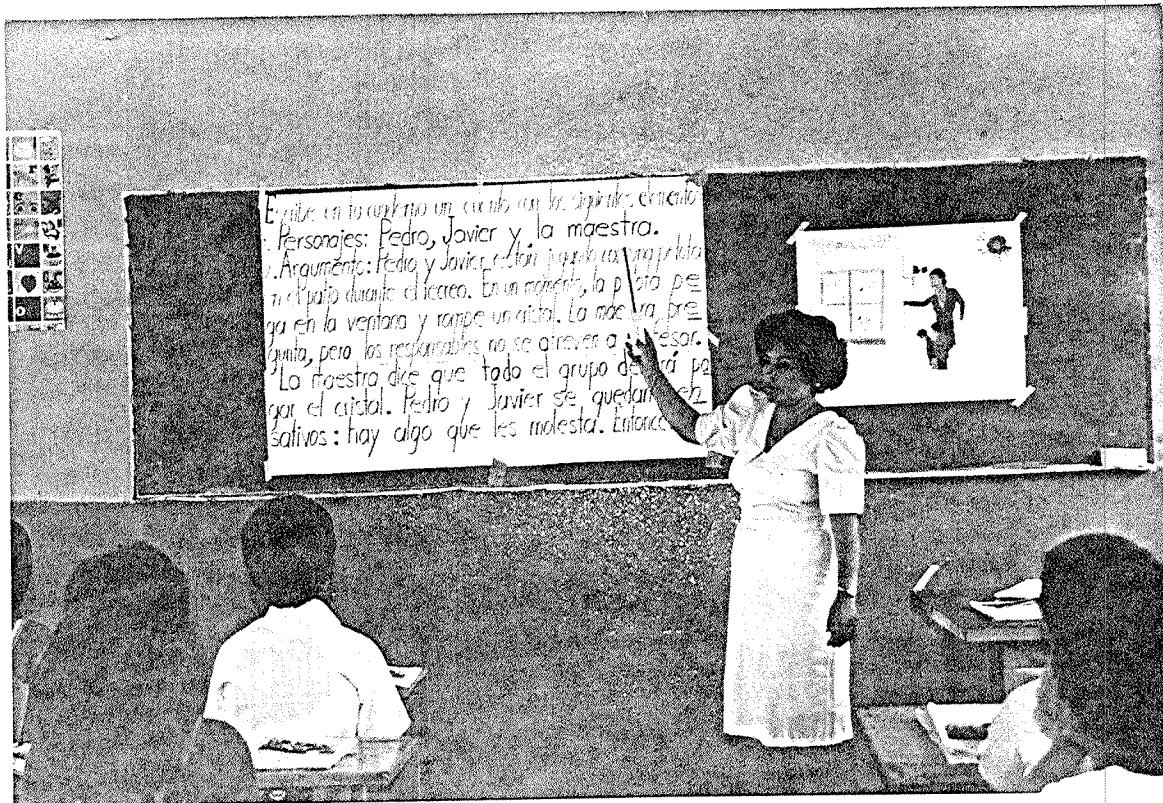 Escribe en tu cuaderno un cuento con los siguientes elemento
. Personajes: Pedro, Javier y la maestra.
. Argumento: Pedro y Javier están jugando con una pelota
en el patio durante el recreo. En un momento, la p ota pe
ga en la ventana y rompe un cristal. La maestra pre
gunta, pero los responsables no se atreven a fesar.
La maestra dice que todo el grupo de rá pa
gar el cristal. Pedro y Javier se quedan en
sativos: hay algo que les molesta. Entonce